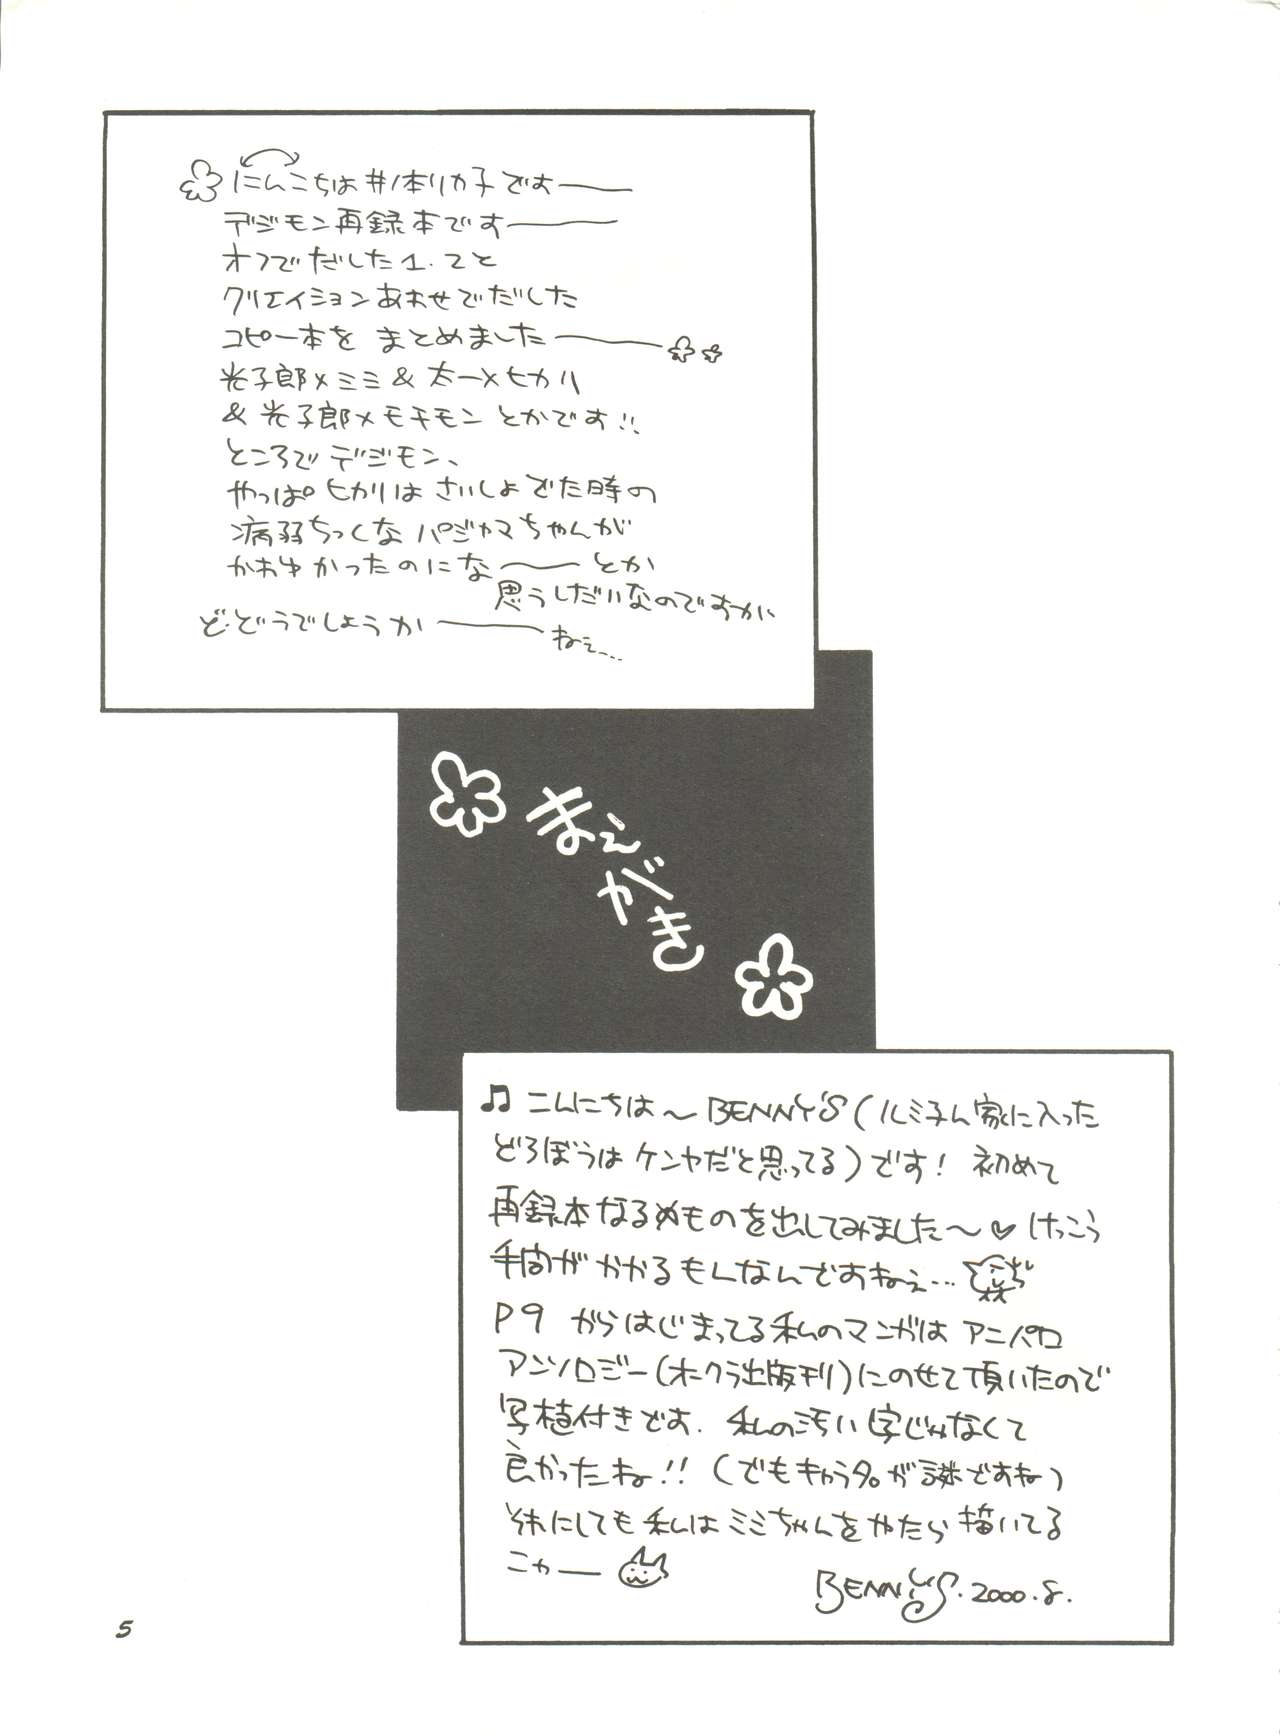 にんこちは井ノ本リカ子です――
デジモン再録本です――
オフでだした1.2と
クリエイションあわせでだした
コピー本を まとめました――
光子郎×ミミ&太一×ヒカリ
&光子郎×モチモン とかです!!
ところで デジモン、
やっぱ ヒカリは さいしょ でた時の
病弱ちっくな パジャマちゃんが
かわゆかったのにな―― とか
思うしだいなのですが
ど・どうでしょうか――
ねぇ…
まえがき
♫ こんにちは〜 BENNY'S(ルミ子ん家に入った
どろぼうは ケンヤだと思ってる)です! 初めて
再録本なるものを出してみました〜♡ けっこう
手間が かかるもんなんですねぇ…
P9 からはじまってる私のマンガは アニパロ
アンソロジー(オークラ出版刊)にのせて頂いたので
写植付きです. 私の汚い字じゃなくて
良かったね!! (でもキャラ名が謎ですね)
それにしても 私は ミミちゃんを やたら 描いてる
ニャ――
BENNY'S.2000.8.
5